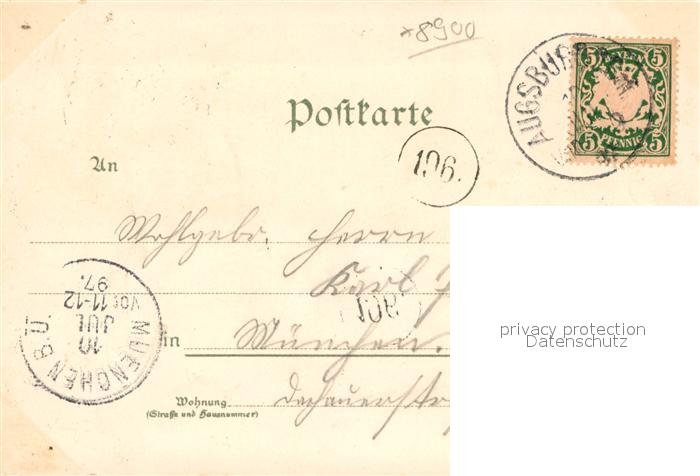 *8900
BAYERN
5 5
5 PFENNIG 5
AUGSBURG
Postkarte
196.
An
Wohlgebr. Herrn
Karl
108
in München.
Dachauerstr
Wohnung
(Straße und Hausnummer)
MUENCHEN B.Ü.
10
JUL
Vor 11-12
97.
privacy protection
Datenschutz